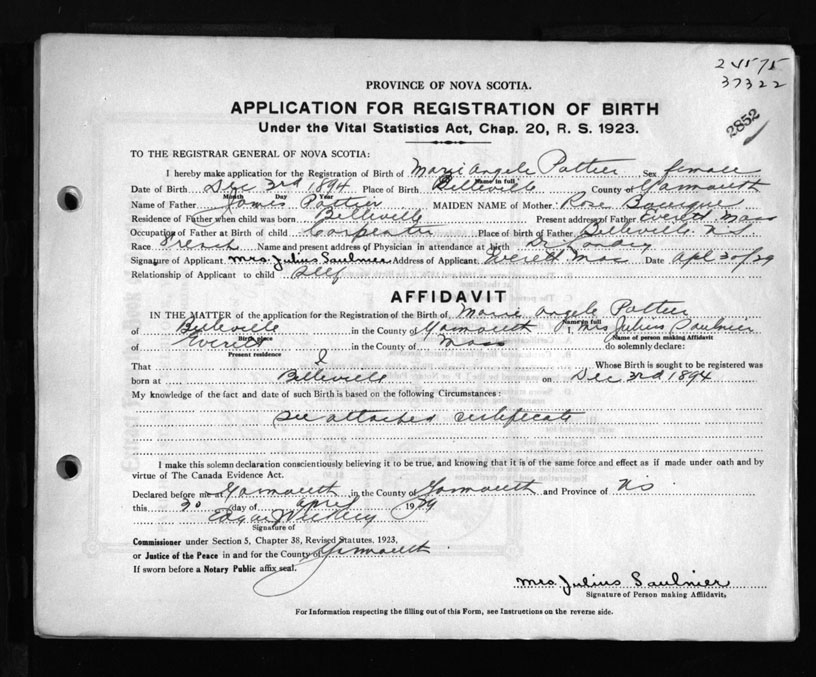 37322
2852
PROVINCE OF NOVA SCOTIA.
APPLICATION FOR REGISTRATION OF BIRTH
Under the Vital Statistics Act, Chap. 20, R. S. 1923.
TO THE REGISTRAR GENERAL OF NOVA SCOTIA:
I hereby make application for the Registration of Birth of Marie Angele Pottier Sex female
Name in full
Date of Birth Dec 3rd 1894 Place of Birth Belleville County of Yarmouth
Month Day Year
Name of Father James Pottier MAIDEN NAME of Mother Rose
Residence of Father when child was born Belleville Present address of Father Everett Mass
Occupation of Father at Birth of child Carpenter Place of birth of Father Belleville N.S
Race French Name and present address of Physician in attendance at birth Dr
Signature of Applicant Mrs. Julius Saulnier Address of Applicant Everett Mass Date Apl 30/29
Relationship of Applicant to child Self
AFFIDAVIT
IN THE MATTER of the application for the Registration of the Birth of Marie Angele Pottier
Name in full
of Belleville in the County of Yarmouth I, Mrs Julius Saulnier
Birth place Name of person making Affidavit
of Everett in the County of Mass do solemnly declare:
Present residence
That I Whose Birth is sought to be registered was
born at Belleville on Dec 3rd 1894
My knowledge of the fact and date of such Birth is based on the following Circumstances:
see attached certificate
I make this solemn declaration conscientiously believing it to be true, and knowing that it is of the same force and effect as if made under oath and by
virtue of The Canada Evidence Act.
Declared before me at Yarmouth in the County of Yarmouth and Province of NS
this 30 day of April 1929
Edgar
Signature of
Commissioner under Section 5, Chapter 38, Revised Statutes, 1923,
or Justice of the Peace in and for the County of Yarmouth
If sworn before a Notary Public affix seal.
Mrs. Julius Saulnier
Signature of Person making Affidavit,
For Information respecting the filling out of this Form, see Instructions on the reverse side.